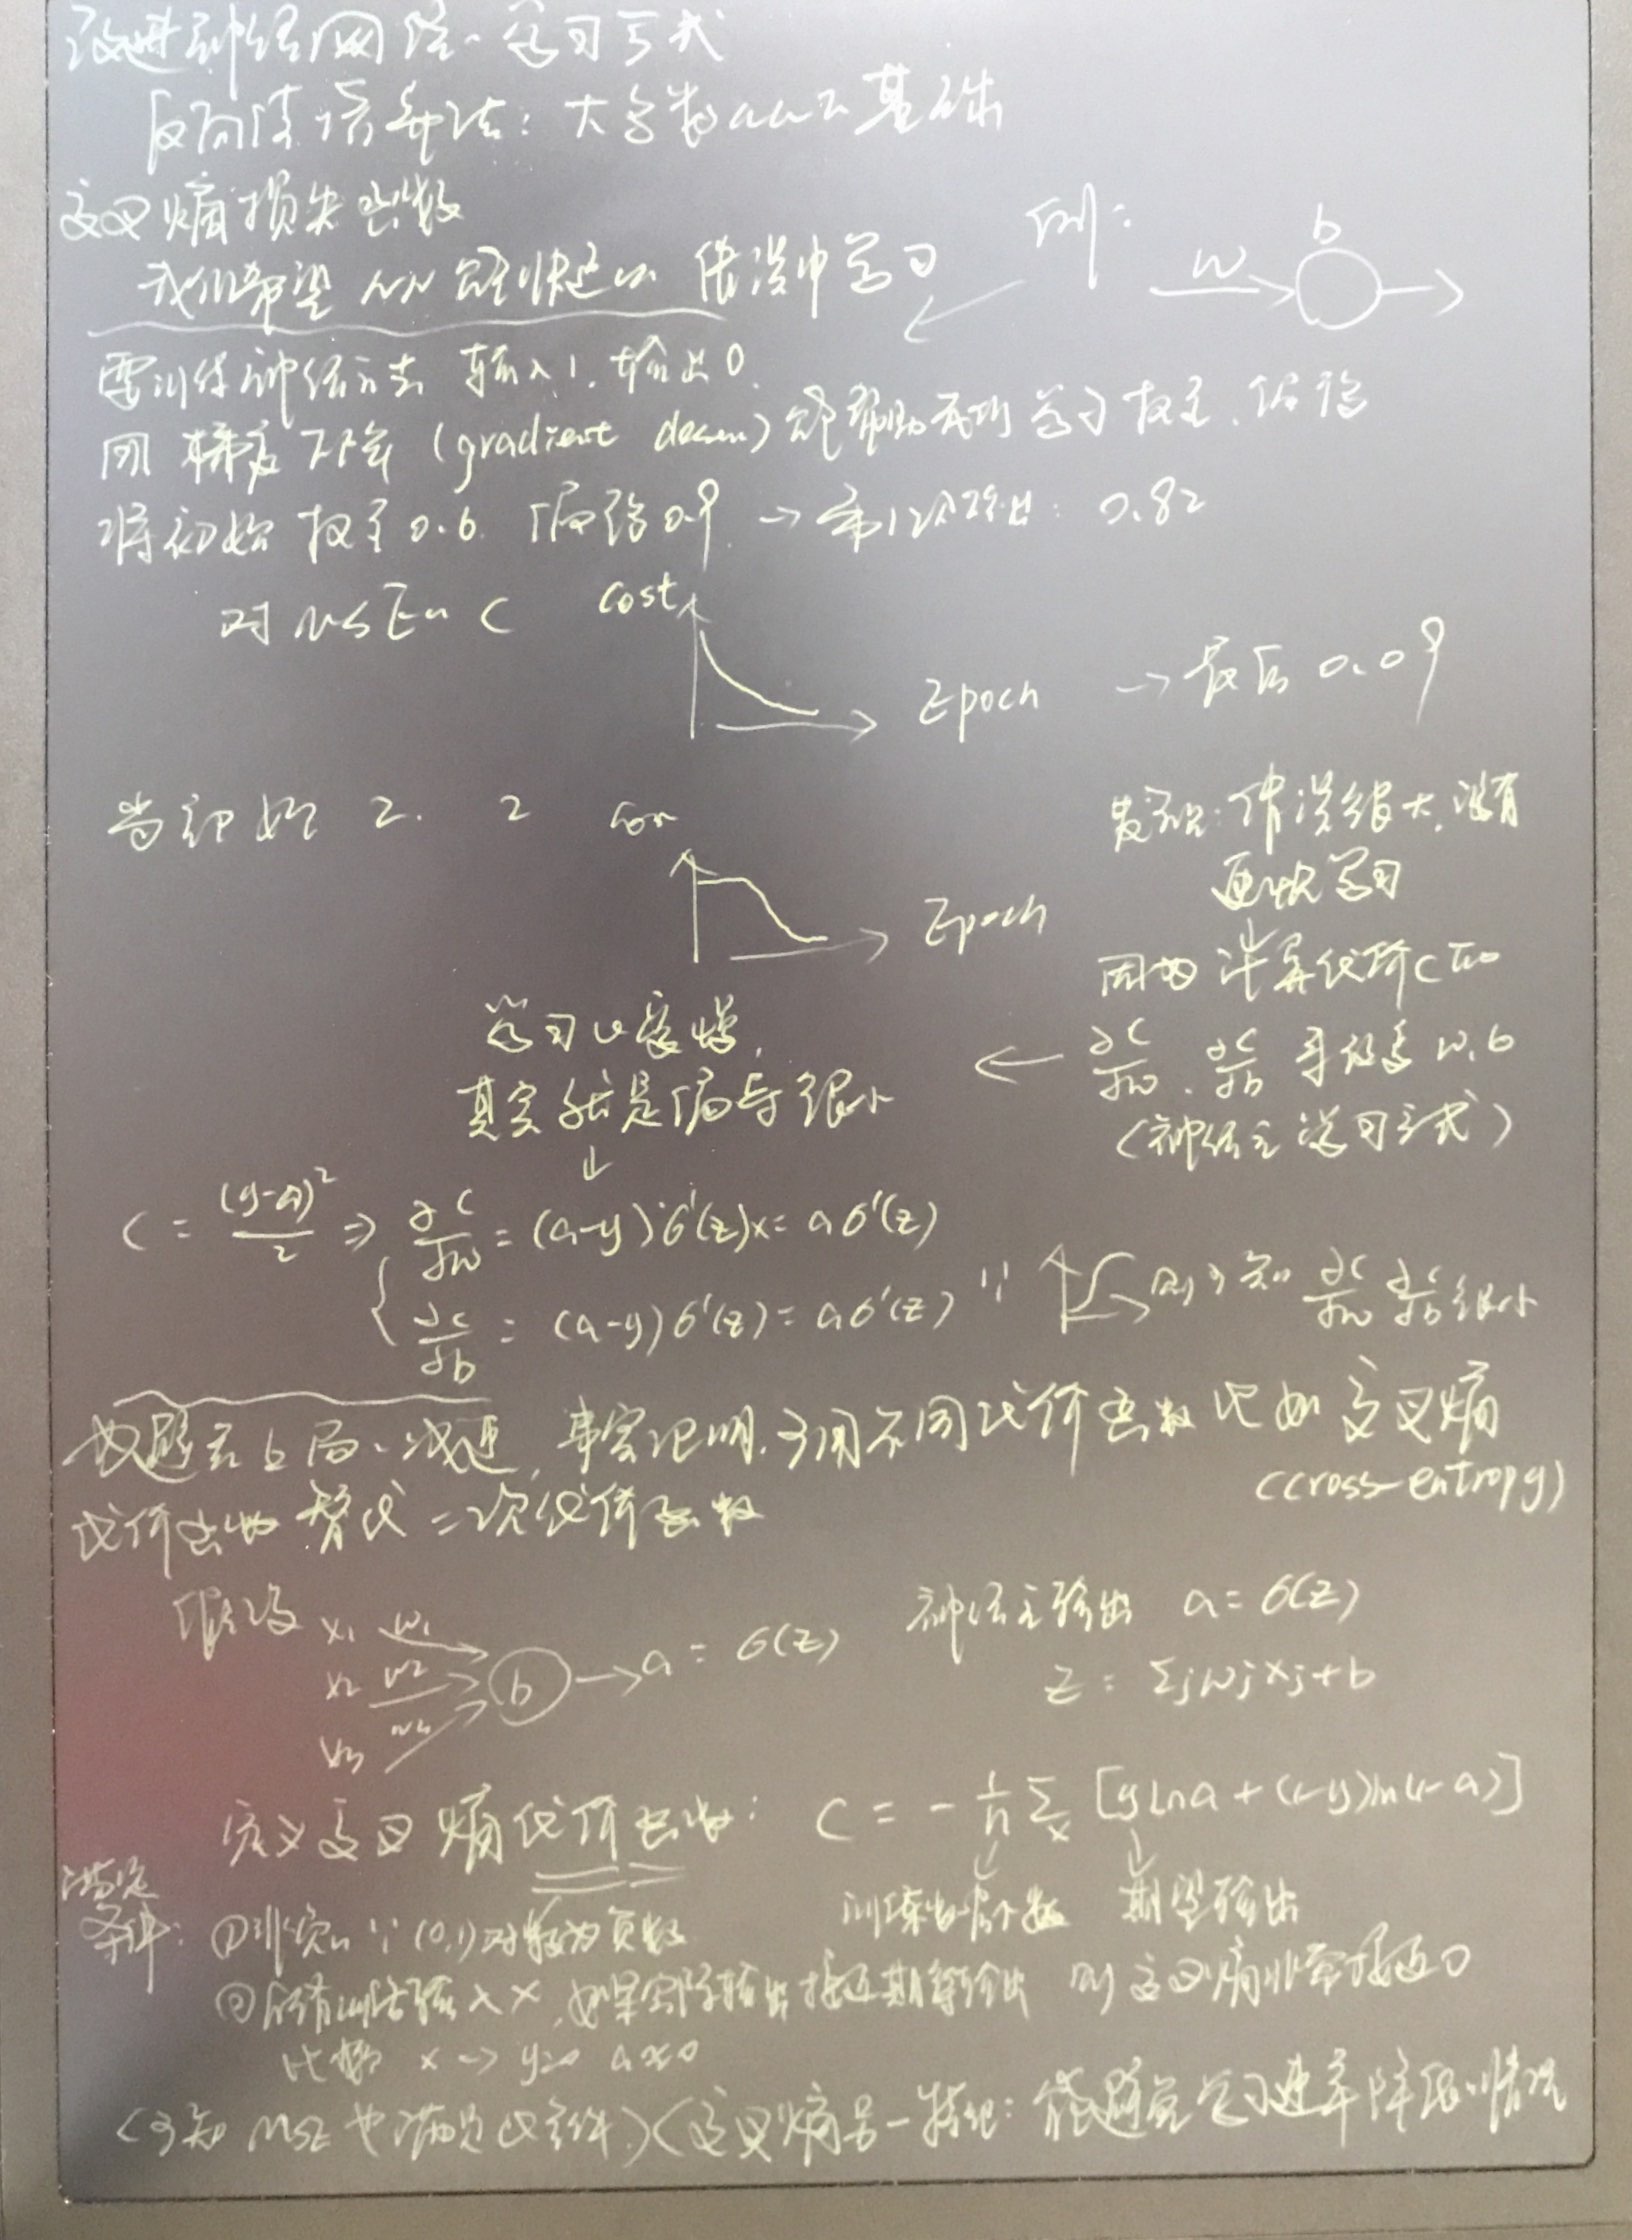 改进神经网络的学习方式
反向传播算法：大多数NN的基础
交叉熵损失函数
我们希望NN能快速从错误中学习
例：
w
b
要训练神经元去 输入1. 输出0.
用梯度下降 (gradient descen) 能帮助我们学习权重.偏移
将初始权重0.6. 偏移0.9. → 第1次输出: 0.82
对MSE的C
Cost
Epoch → 最后 0.09
当初始 2. 2
Cos
Epoch
发现: 错误很大,没有
更快学习
因为 计算代价C
学习比较慢,
∂C/∂w . ∂C/∂b w.b
其实就是偏导很小
(神经元学习方式)
C = (y-a)²/2 ⇒ ∂C/∂w = (a-y)σ'(z)x = aσ'(z)
∂C/∂b = (a-y)σ'(z) = aσ'(z) ∵ 则可知 ∂C/∂w ∂C/∂b 很小
减速, 事实证明.可用不同代价函数比如交叉熵
(cross-entropy)
代价函数 替代 二次代价函数
假设
x₁ w₁
x₂ w₂
x₃ w₃
b → a = σ(z)
神经元输出 a = σ(z)
z = Σj wj xj + b
定义交叉熵代价函数: C = - 1/n Σx [y ln a + (1-y) ln(1-a)]
训练数据个数 期望输出
满足
条件:
①非负的 ∵ (0,1)对数为负数
②所有训练输入x, 如果实际输出接近期望输出 则交叉熵非常接近0
比如 x → y=0 a≈0
(可知 MSE也满足此条件) (交叉熵另一特性: 能避免学习速率降低的情况